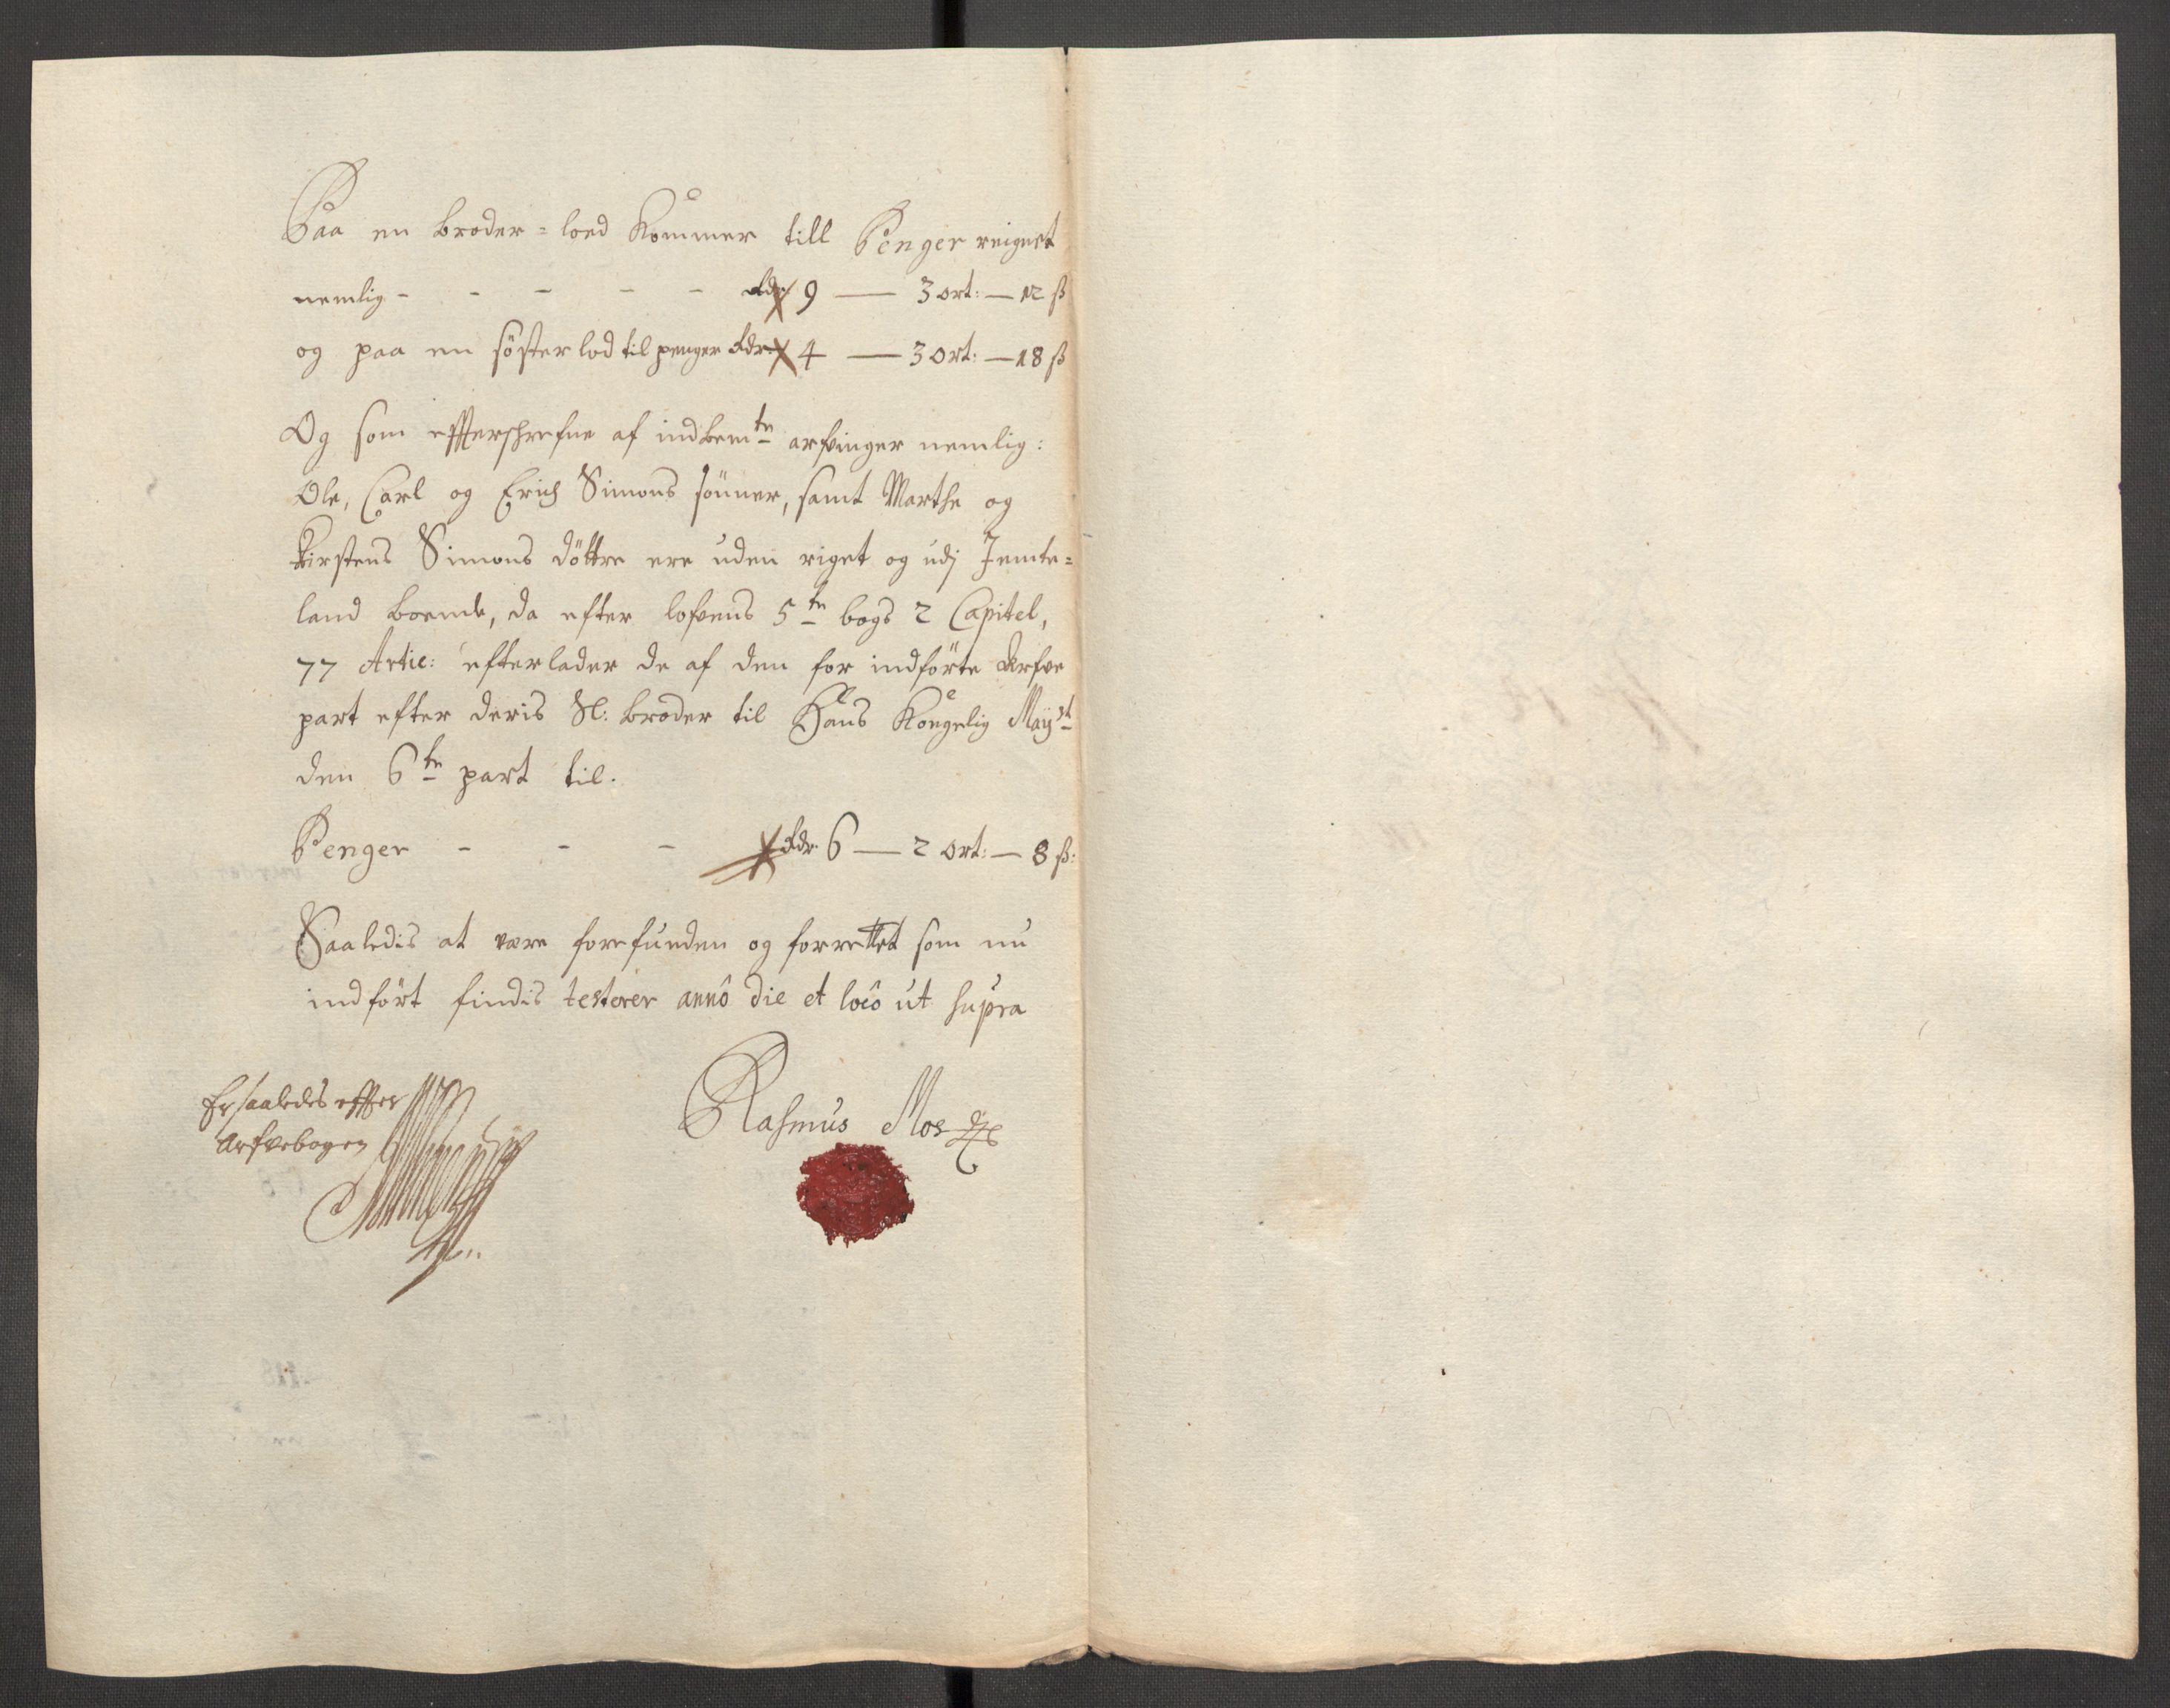 Paa en broder=loed Kommer till Penger reignet
nemlig - - - - - Rdr 9 — 3 ort: — 12 ß
og paa en söster lod til penger Rdr 4 — 3 ort: — 18 ß
Og som effterschrefne af indbemte arfvinger nemlig:
Ole, Carl og Erich Simons sönner, samt Marthe og
Kirstens Simons döttre ere uden riget og udj Jemte=
land boende, da efter lofvens 5te bogs 2 Capitel,
77 Artic: efterlader de af den for indförte Arfve
part efter deris Sl: broder til Hans Kongelig Mayst
den 6te part til.
Penger - - - Rdr 6 — 2 ort: — 8 ß:
Saaledis at være forefunden og forrettet som nu
indfört findis testerer anno die et loco ut supra
Er saaledes effter
Arfvebogen
Rasmus Mos